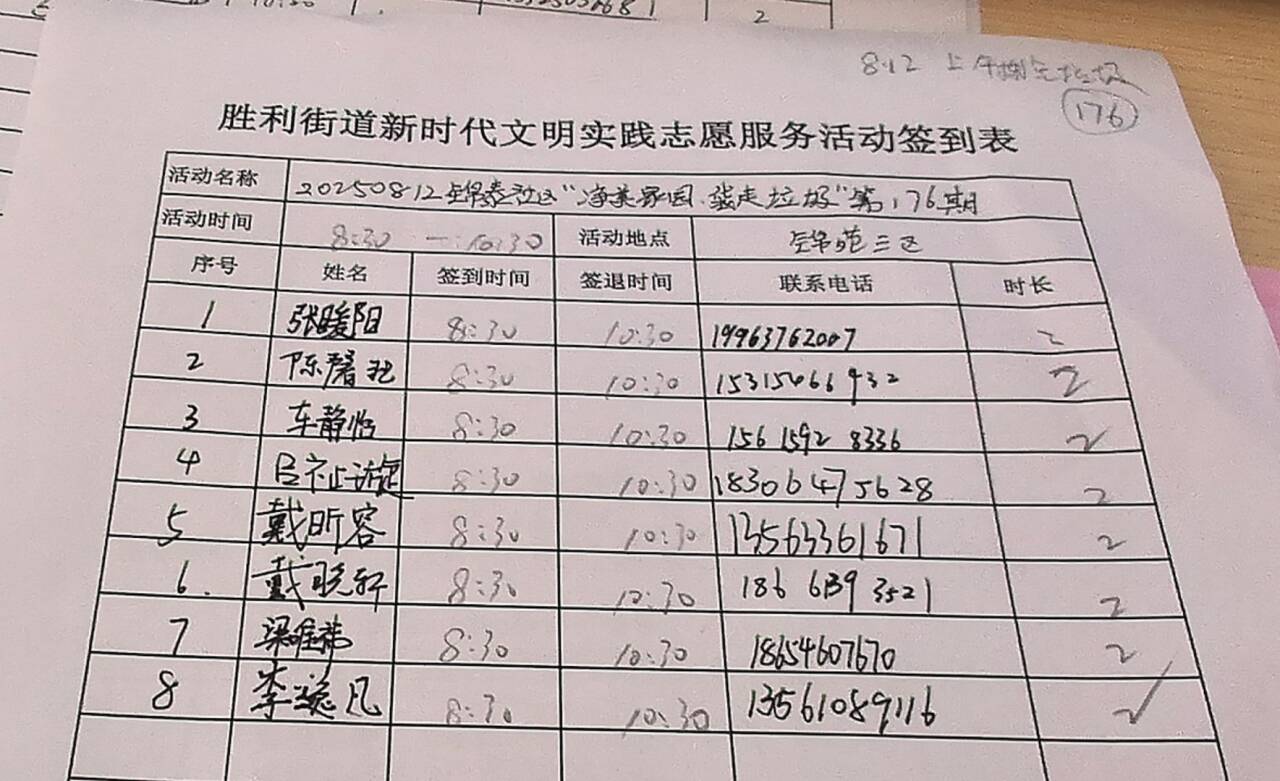 2
8.12 上午
176
胜利街道新时代文明实践志愿服务活动签到表
活动名称 20250812锦泰社区“净美家园、袋走垃圾”第176期
活动时间 8:30 —:10:30 活动地点 锦苑三区
序号 姓名 签到时间 签退时间 联系电话 时长
1 张暖阳 8:30 10:30 19963762007 2
2 陈 8:30 10:30 15315466932 2
3 车静怡 8:30 10:30 156 1592 8336 2
4 吕 8:30 10:30 18306475628 2
5 戴昕容 8:30 10:30 13563361671 2
6. 戴晓轩 8:30 10:30 186 6139 3521 2
7 梁唯 8:30 10:30 18654607670 2
8 李 凡 8:30 10:30 13561089116 2